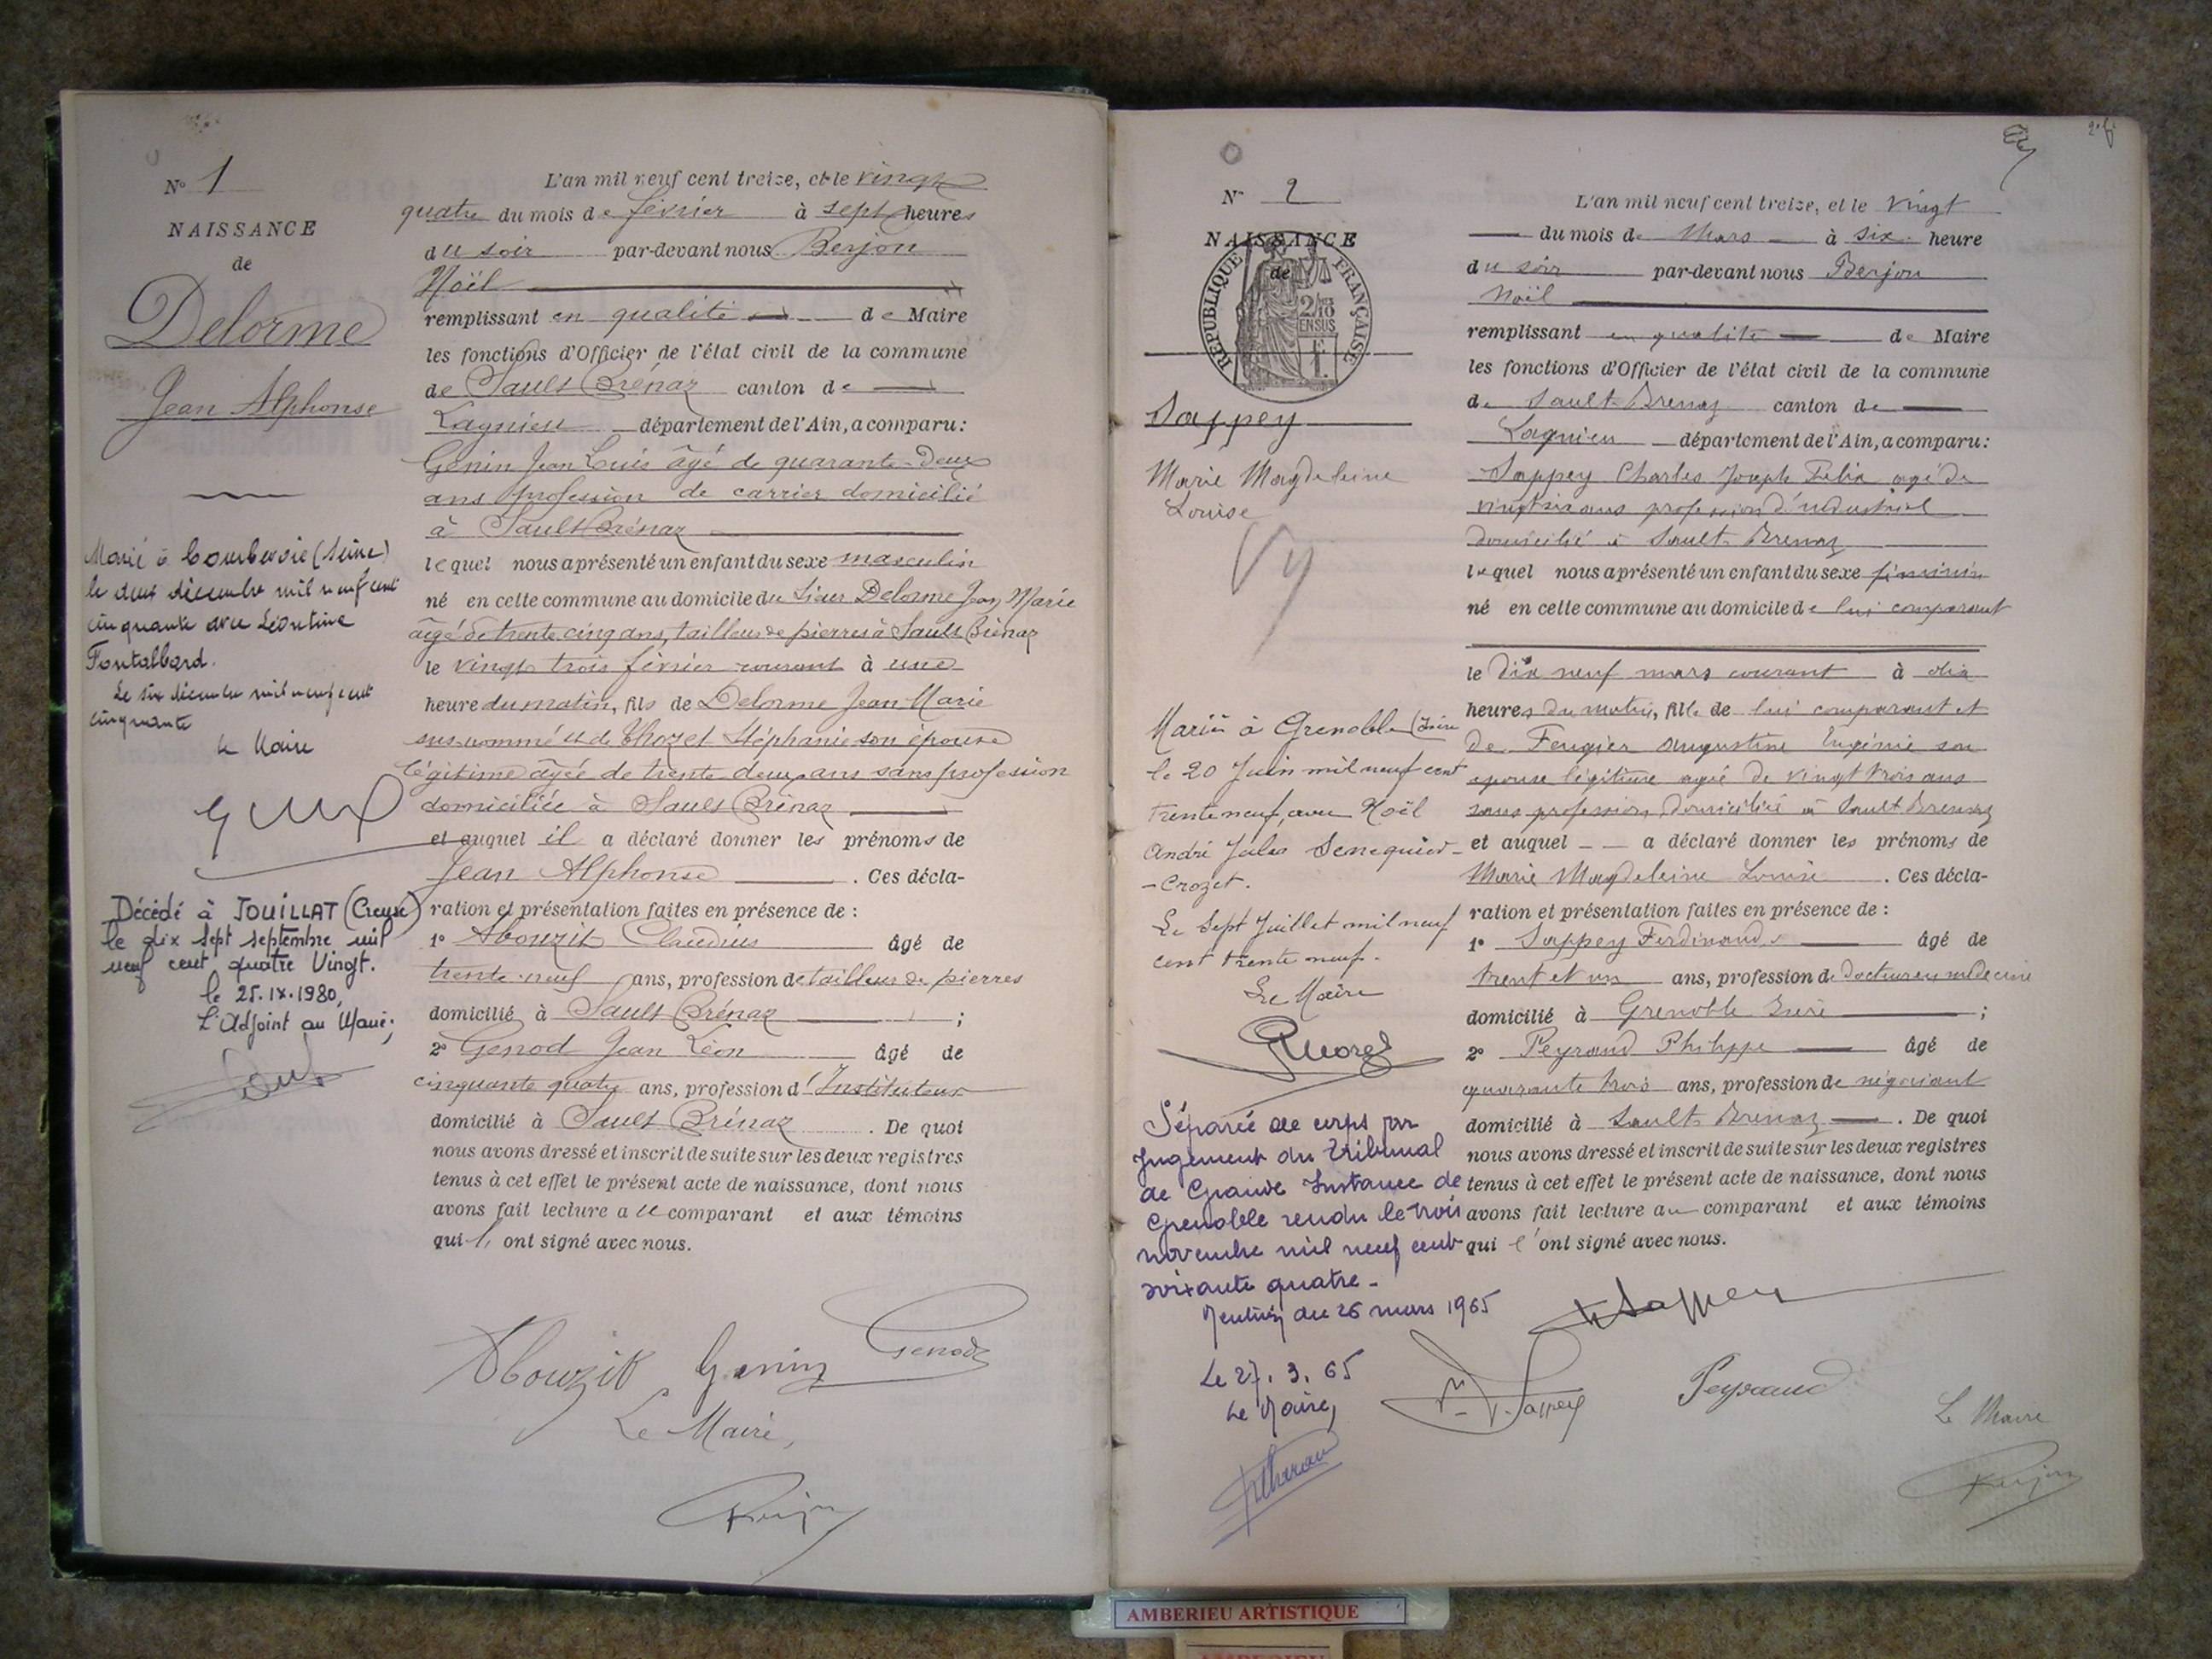 N° 1
NAISSANCE
de
Delorme
Jean Alphonse
Marié à Courbevoie (Seine)
le deux décembre mil neuf cent
cinquante avec Léontine
Fontalbard.
Le six décembre mil neuf cent
cinquante
Le Maire
Décédé à JOUILLAT (Creuse)
le dix sept septembre mil
neuf cent quatre Vingt.
le 25.IX.1980,
L'Adjoint au Maire;
L'an mil neuf cent treize, et le vingt
quatre du mois de février à sept heures
du soir par-devant nous Berjon
Noël
remplissant en qualité de Maire
les fonctions d'Officier de l'état civil de la commune
de Sault Brénaz canton de
Lagnieu département de l'Ain, a comparu :
Genin Jean Louis âgé de quarante-deux
ans profession de carrier domicilié
à Sault Brénaz
lequel nous a présenté un enfant du sexe masculin
né en cette commune au domicile du Sieur Delorme Jean Marie
âgé de trente cinq ans, tailleur de pierres à Sault Brénaz
le vingt trois février courant à une
heure du matin, fils de Delorme Jean Marie
sus-nommé et de Thozet Stéphanie son épouse
légitime âgée de trente deux ans sans profession
domiciliée à Sault Brénaz
et auquel il a déclaré donner les prénoms de
Jean Alphonse . Ces décla-
ration et présentation faites en présence de :
1° Abouzit Claudius âgé de
trente-neuf ans, profession de tailleur de pierres
domicilié à Sault Brénaz ;
2° Genod Jean Léon âgé de
cinquante quatre ans, profession d'Instituteur
domicilié à Sault Brénaz . De quoi
nous avons dressé et inscrit de suite sur les deux registres
tenus à cet effet le présent acte de naissance, dont nous
avons fait lecture au comparant et aux témoins
qui l' ont signé avec nous.
Abouzit Genin Genod
Le Maire,
Berjon
N° 2
NAISSANCE
de
RÉPUBLIQUE FRANÇAISE
2/10
EN SUS
Sappey
Marie Magdeleine
Louise
Mariée à Grenoble (Isère
le 20 Juin mil neuf cent
trente neuf, avec Noël
André Jules Senequier-
-Crozet.
Le Sept Juillet mil neuf
cent trente neuf.
Le Maire
Séparée de corps par
jugement du Tribunal
de Grande Instance de
Grenoble rendu le trois
novembre mil neuf cent
soixante quatre -
Mention du 26 mars 1965
Le 27.3.65
Le Maire,
L'an mil neuf cent treize, et le vingt
du mois de Mars à six heure
du soir par-devant nous Berjon
Noël
remplissant en qualité de Maire
les fonctions d'Officier de l'état civil de la commune
de Sault-Brenaz canton de
Lagnieu département de l'Ain, a comparu :
Sappey Charles Joseph Félix agé de
vingt six ans profession d'industriel
domicilié à Sault-Brenaz
lequel nous a présenté un enfant du sexe féminin
né en cette commune au domicile de lui comparant
le dix neuf mars courant à dix
heures du matin, fille de lui comparant et
de Feugier Augustine Eugénie son
epouse légitime agée de vingt trois ans
sans profession, domiciliée à Sault Brenaz
et auquel a déclaré donner les prénoms de
Marie Magdeleine Louise . Ces décla-
ration et présentation faites en présence de :
1° Sappey Ferdinand âgé de
trent et un ans, profession de docteur en médecine
domicilié à Grenoble Isère ;
2° Peyraud Philippe âgé de
quarante trois ans, profession de négociant
domicilié à Sault-Brenaz . De quoi
nous avons dressé et inscrit de suite sur les deux registres
tenus à cet effet le présent acte de naissance, dont nous
avons fait lecture au comparant et aux témoins
qui l'ont signé avec nous.
Sappey
F. Sappey
Peyraud
Le Maire
Berjon
AMBERIEU ARTISTIQUE
AMBERIEU